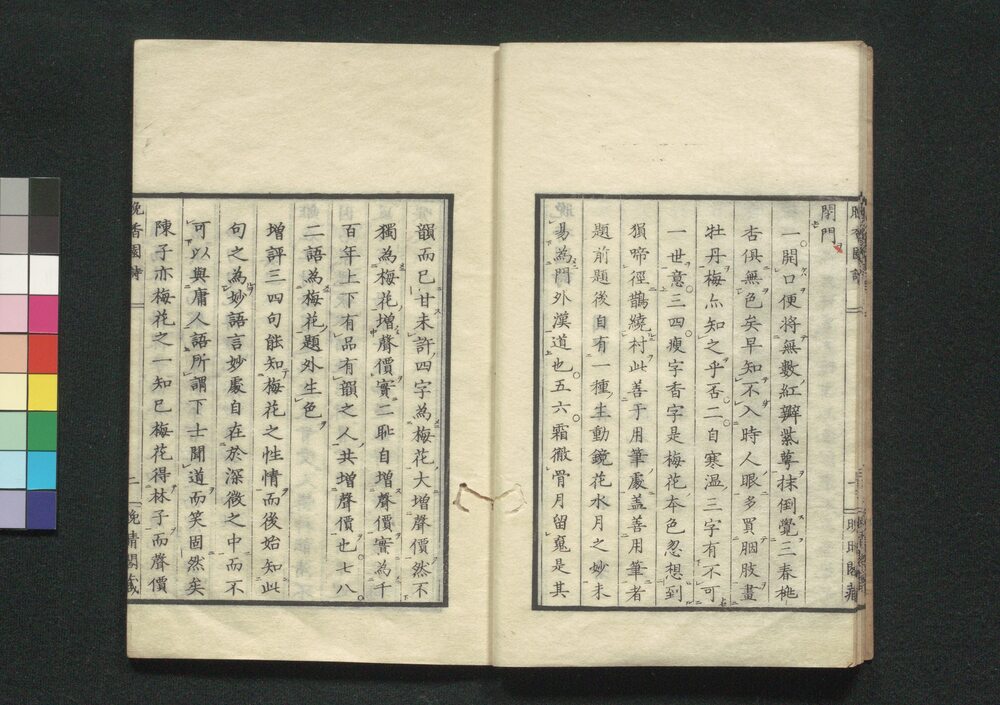 閉門
一開口便将無數紅辧紫蕚抹倒覺三春桃
杏俱無色矣早知不入時人眼多買胭肢畫
牡丹梅亦知之乎否二自寒温三字有不可
一世意三四瘦字香字是梅花本色忽想到
猨啼徑鵲繞村此善于用筆處盖善用筆者
題前題後自有一種生動鏡花水月之妙未
易為門外漢道也五六霜徹骨月留寃是其
韻而已甘未許四字為梅花大增聲價然不
獨為梅花增聲價實二耻自增聲價實為千
百年上下有品有韻之人共增聲價也七八
二語為梅花題外生色
増評三四句能知梅花之性情而後始知此
句之為妙語言妙處自在於深微之中而不
可以與庸人語所謂下士聞道而笑固然矣
陳子亦梅花之一知已梅花得林子而聲價
晩香園詩
二
晩晴閣蔵